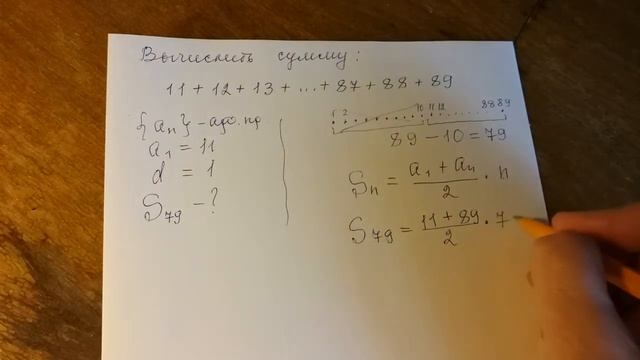 Вычислить сумму:
11 + 12 + 13 + ... + 87 + 88 + 89
{an} - ар. пр
a1 = 11
d = 1
S79 - ?
1 2 10 11 12 88 89
89 - 10 = 79
Sn = (a1 + an)/2 · n
S79 = (11 + 89)/2 · 7